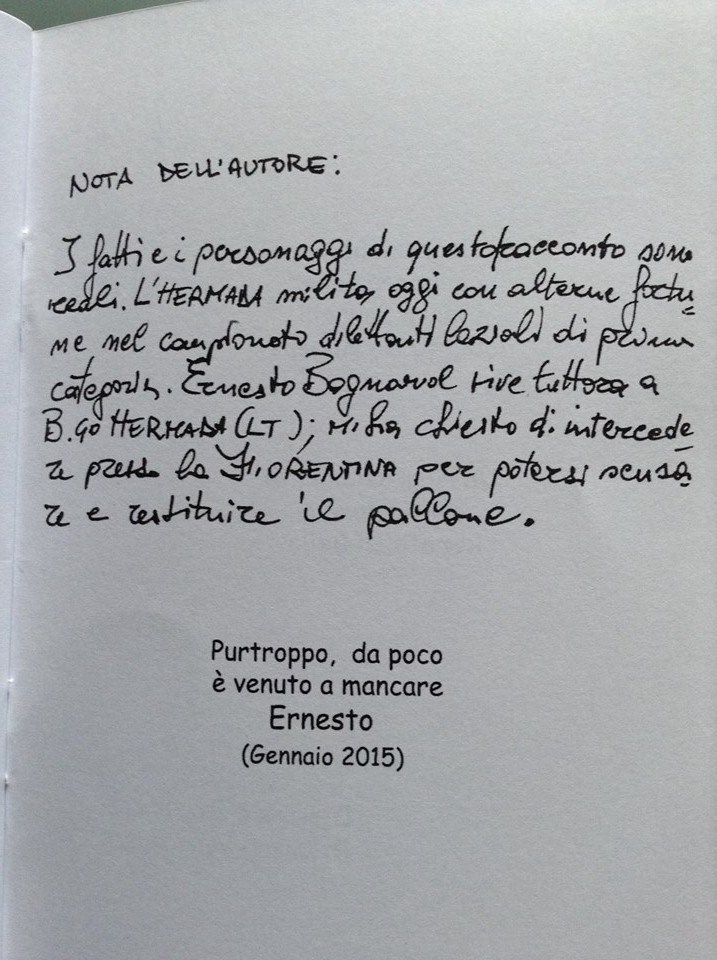 NOTA DELL'AUTORE:
I fatti e i personaggi di questo racconto sono
reali. L'HERMADA milita oggi con alterne fortu=
ne nel campionato dilettanti laziali di prima
categoria. Ernesto Bognarol vive tuttora a
B.GO HERMADA (LT); mi ha chiesto di intercede=
re presso la FIORENTINA per potersi scusa=
re e restituire il pallone.
Purtroppo, da poco
è venuto a mancare
Ernesto
(Gennaio 2015)